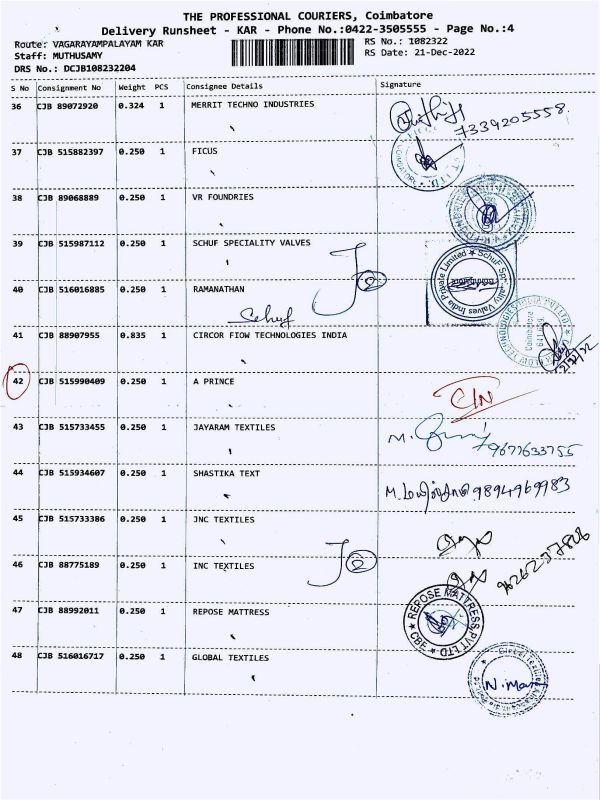 THE PROFESSIONAL COURIERS, Coimbatore
Delivery Runsheet - KAR - Phone No.:0422-3505555 - Page No.:4
Route: VAGARAYAMPALAYAM KAR RS No.: 1082322
Staff: MUTHUSAMY RS Date: 21-Dec-2022
DRS No.: DCJB108232204
S No Consignment No Weight PCS Consignee Details Signature
36 CJB 89072920 0.324 1 MERRIT TECHNO INDUSTRIES
7339205558
37 CJB 515882397 0.250 1 FICUS
38 CJB 89068889 0.250 1 VR FOUNDRIES
39 CJB 515987112 0.250 1 SCHUF SPECIALITY VALVES
SchuF Speciality Valves India Private Limited
40 CJB 516016885 0.250 1 RAMANATHAN
Schuf
41 CJB 88907955 0.835 1 CIRCOR FIOW TECHNOLOGIES INDIA
42 CJB 515990409 0.250 1 A PRINCE
C/N
43 CJB 515733455 0.250 1 JAYARAM TEXTILES
9677633755
44 CJB 515934607 0.250 1 SHASTIKA TEXT
9894969983
45 CJB 515733386 0.250 1 JNC TEXTILES
46 CJB 88775189 0.250 1 INC TEXTILES
47 CJB 88992011 0.250 1 REPOSE MATTRESS
REPOSE MATTRESS PVT LTD CBE
48 CJB 516016717 0.250 1 GLOBAL TEXTILES
N. Mani